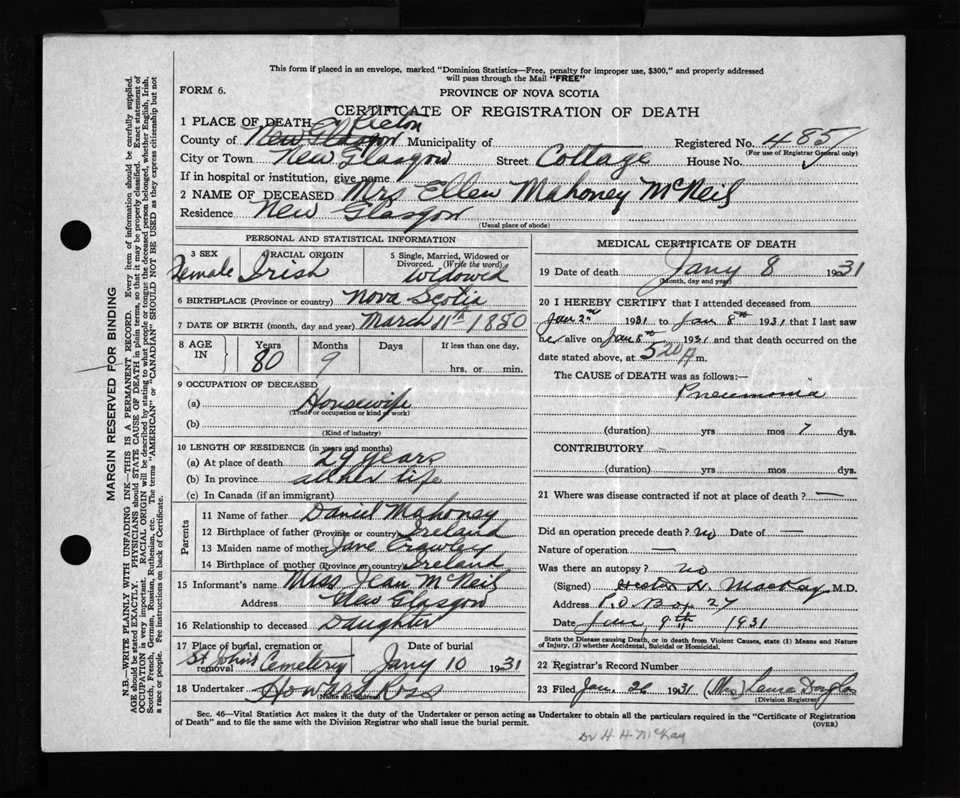 This form if placed in an envelope, marked "Dominion Statistics—Free, penalty for improper use, $300," and properly addressed
will pass through the Mail "FREE"
FORM 6.
PROVINCE OF NOVA SCOTIA
CERTIFICATE OF REGISTRATION OF DEATH
1 PLACE OF DEATH Pictou
County of New Glasgow Municipality of Registered No. 485
(For use of Registrar General only)
City or Town New Glasgow Street Cottage House No.
If in hospital or institution, give name
2 NAME OF DECEASED Mrs Ellen Mahoney McNeil
Residence New Glasgow
(Usual place of abode)
PERSONAL AND STATISTICAL INFORMATION
3 SEX RACIAL ORIGIN 5 Single, Married, Widowed or
Divorced. (Write the word)
Female Irish widowed
6 BIRTHPLACE (Province or country) Nova Scotia
7 DATE OF BIRTH (month, day and year) March 11th 1850
8 AGE IN Years Months Days If less than one day,
80 9 hrs. or min.
9 OCCUPATION OF DECEASED
(a) Housewife
(Trade or occupation or kind of work)
(b)
(Kind of industry)
10 LENGTH OF RESIDENCE (in years and months)
(a) At place of death 29 years
(b) In province all her life
(c) In Canada (if an immigrant)
Parents
11 Name of father Daniel Mahoney
12 Birthplace of father (Province or country) Ireland
13 Maiden name of mother Jane Crowley
14 Birthplace of mother (Province or country) Ireland
15 Informant's name Miss Jean McNeil
Address New Glasgow
16 Relationship to deceased Daughter
17 Place of burial, cremation or removal Date of burial
St John's Cemetery Jany 10 1931
18 Undertaker Howard Ross
(Name and address)
MEDICAL CERTIFICATE OF DEATH
19 Date of death Jany 8 1931
(Month, day and year)
20 I HEREBY CERTIFY that I attended deceased from
Jan 2nd 1931 to Jan 8th 1931 that I last saw
her alive on Jan 8th 1931 and that death occurred on the
date stated above, at 5 20 A m.
The CAUSE OF DEATH was as follows:—
Pneumonia
(duration) yrs mos 7 dys.
CONTRIBUTORY
(duration) yrs mos dys.
21 Where was disease contracted if not at place of death? —
Did an operation precede death? no Date of —
Nature of operation —
Was there an autopsy? no
(Signed) Hector H. MacKay, M.D.
Address P.O. Box 27
Date Jan 9th 1931
State the Disease causing Death, or in death from Violent Causes, state (1) Means and Nature
of Injury, (2) whether Accidental, Suicidal or Homicidal.
22 Registrar's Record Number
23 Filed Jan. 26 1931 (Mrs) Lena Douglas
(Division Registrar)
Sec. 46—Vital Statistics Act makes it the duty of the Undertaker or person acting as Undertaker to obtain all the particulars required in the "Certificate of Registration
of Death" and to file the same with the Division Registrar who shall issue the burial permit.
(OVER)
Dr H. H. McKay
MARGIN RESERVED FOR BINDING
N.B.—WRITE PLAINLY WITH UNFADING INK—THIS IS A PERMANENT RECORD. Every item of information should be carefully supplied.
AGE should be stated EXACTLY. PHYSICIANS should STATE CAUSE OF DEATH in plain terms, so that it may be properly classified. Exact statement of
OCCUPATION is very important. RACIAL ORIGIN will be described by stating to what people or tongue the deceased person belonged, whether English, Irish,
Scotch, French, German, Russian, Ruthenian, etc. The terms "AMERICAN" or "CANADIAN" SHOULD NOT BE USED as they express citizenship but not
a race or people. See instructions on back of Certificate.